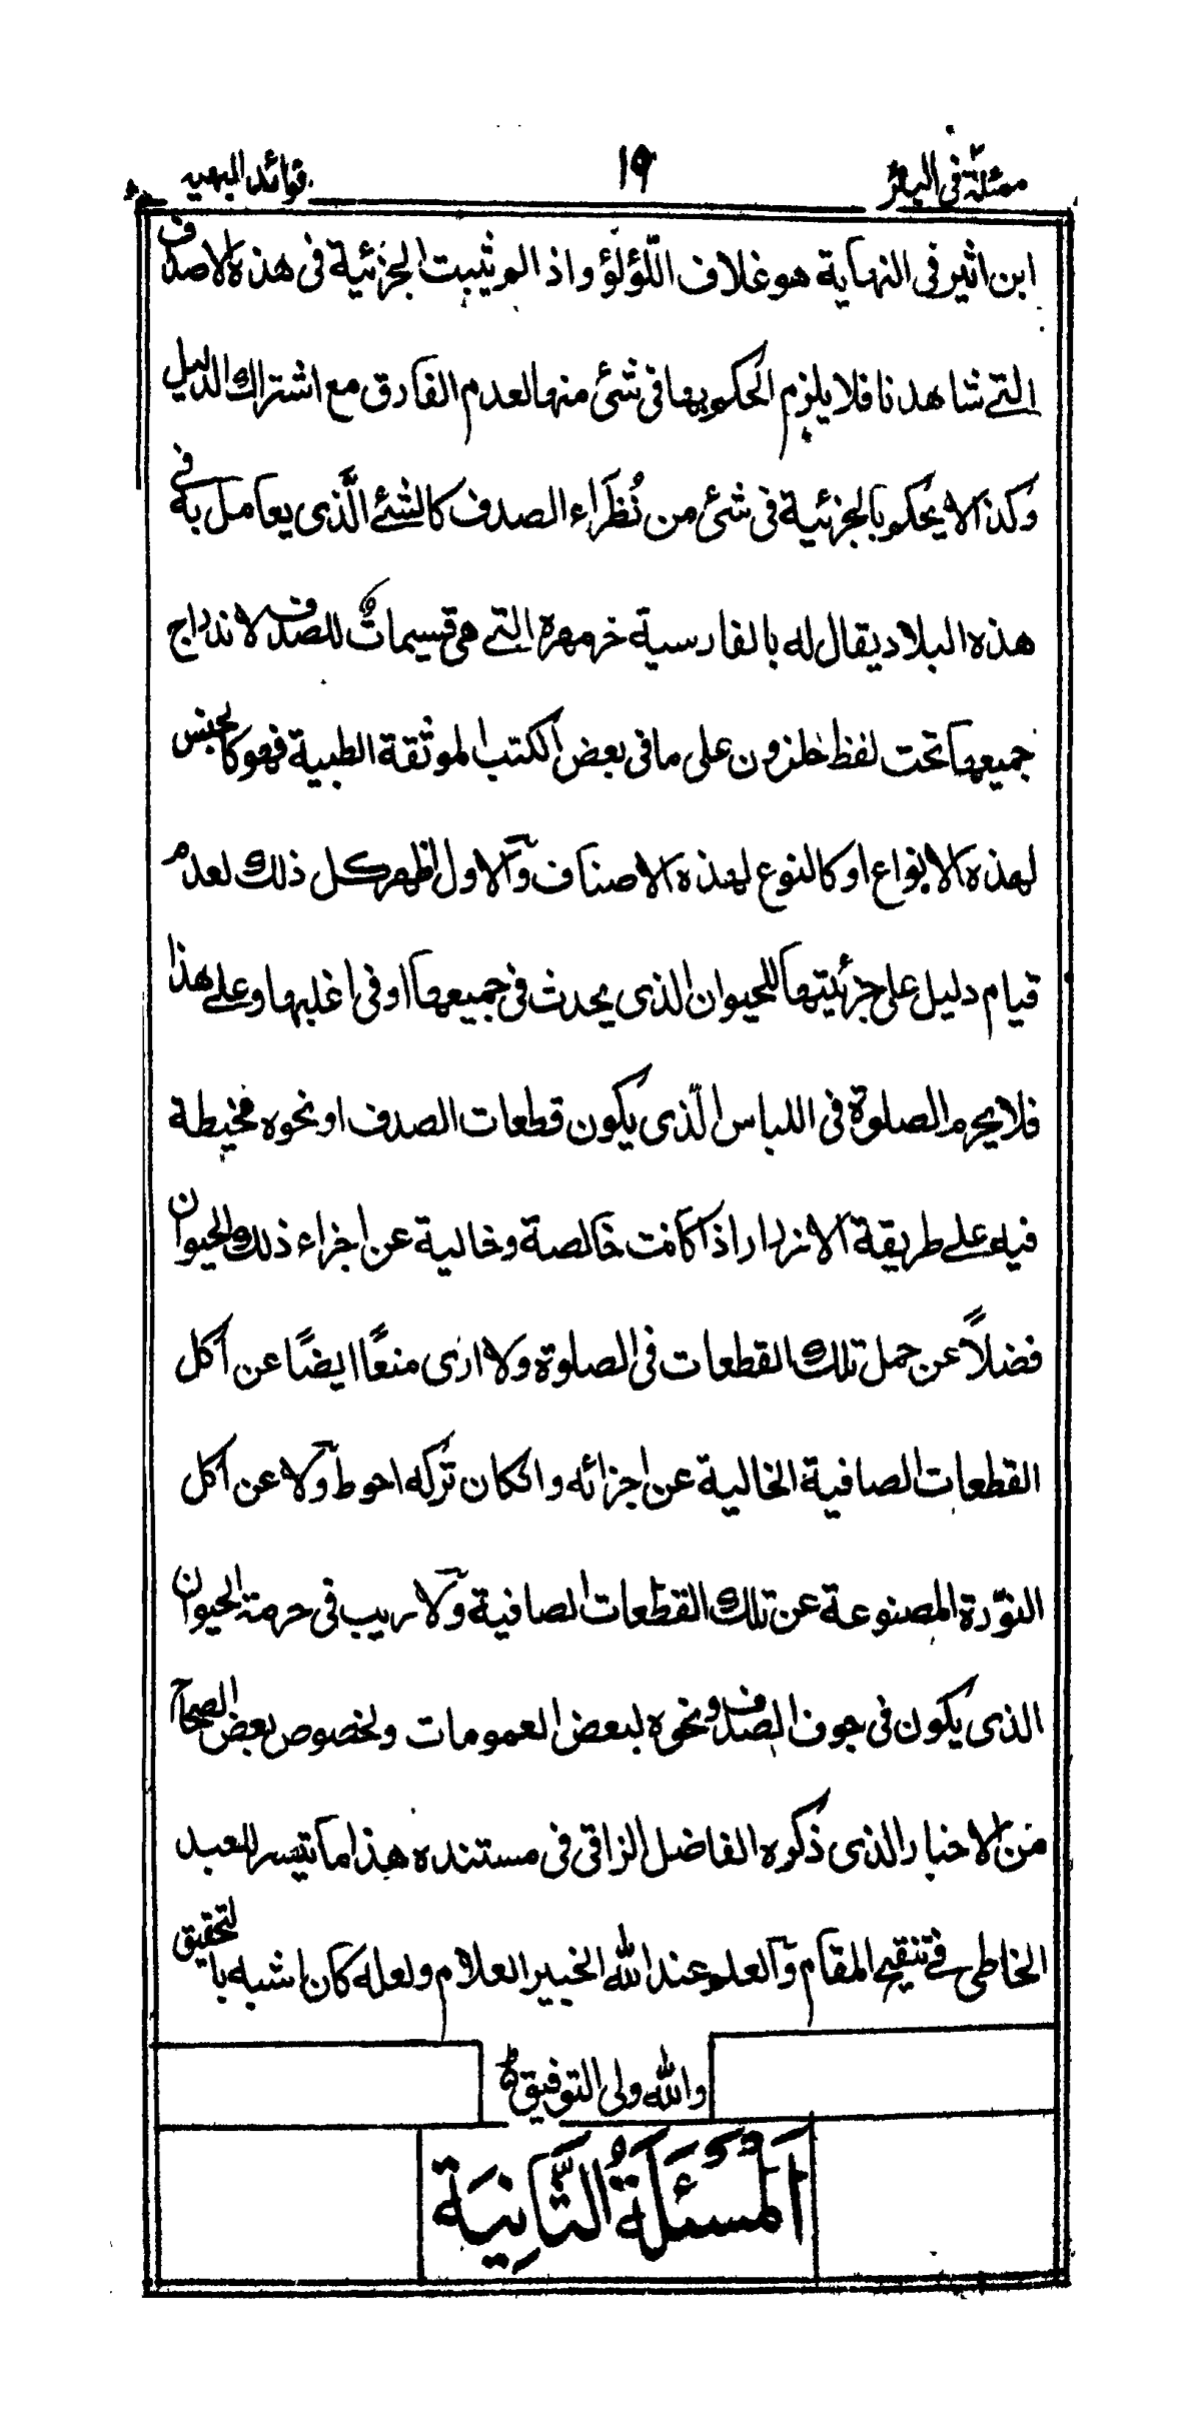 مسئلة فى البئر ١٩ فوائد البهيه
ابن اثير فى النهاية هو غلاف اللّؤلؤ واذا لم يثبت الجزئية فى هذه الاصداف
التے شاهدنا فلا يلزم الحكم بها فى شئ منها لعدم الفارق مع اشتراك الدليل
وكذا لا يحكم بالجزئية فى شئ من نُظَراء الصدف كالشئے الَّذى يعامل به فے
هذه البلاد يقال له بالفارسية خرمهرة التے هى قسيماتٌ للصدف لاندراج
جميعها تحت لفظ حلزون على ما فى بعض الكتب الموثقة الطبية فهو كالجنس
لهذه الانواع او كالنوع لهذه الاصناف والاول اظهر كل ذلك لعدم
قيام دليل على جزئيتها للحيوان الذى يحدث فى جميعها او فى اغلبها وعلے هذا
فلا يحرم الصلوة فى اللباس الّذى يكون قطعات الصدف او نحوه مخيطة
فيه علے طريقة الازرار اذا كانت خالصة وخالية عن اجزاء ذلك الحيوان
فضلاً عن حمل تلك القطعات فى الصلوة ولا ارى منعًا ايضًا عن اكل
القطعات الصافية الخالية عن اجزائه وانكان تركه احوط ولا عن اكل
النوّرة المصنوعة عن تلك القطعات الصافية ولا ريب فى حرمة الحيوان
الذى يكون فى جوف الصدف ونحوه لبعض العمومات ولخصوص بعض الصحاح
من الاخبار الذى ذكره الفاضل النراقى فى مستنده هذا ما تيسر للعبد
الخاطى فے تنقيح المقام والعلم عند الله الخبير العلام ولعله كان اشبه بالتحقيق
والله ولى التوفيق
اَلْمَسْئَلَةُ الثَّانِيَة